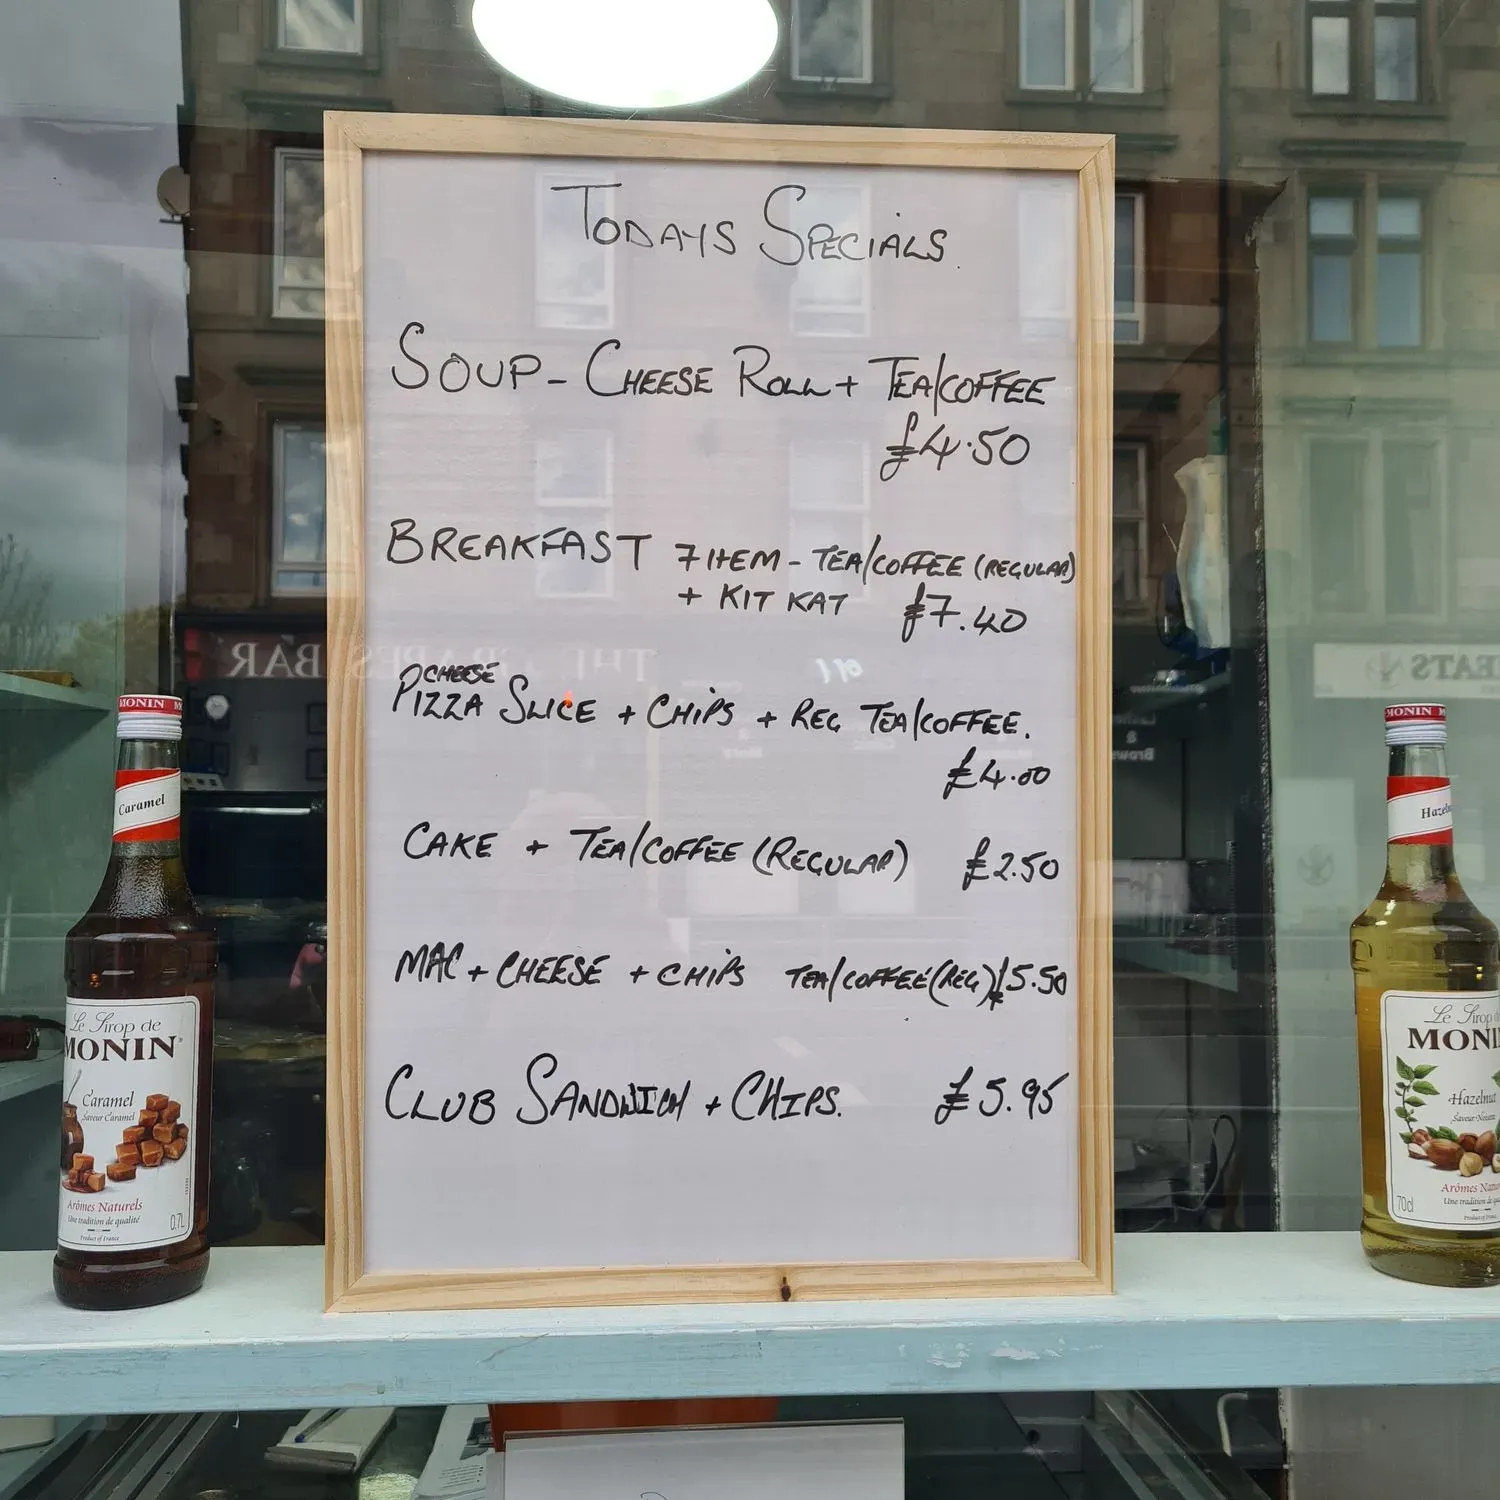 TODAYS SPECIALS.
SOUP - CHEESE ROLL + TEA/COFFEE
£4.50
BREAKFAST 7 ITEM - TEA/COFFEE (REGULAR)
+ KIT KAT £7.40
CHEESE
PIZZA SLICE + CHIPS + REG TEA/COFFEE.
£4.00
CAKE + TEA/COFFEE (REGULAR) £2.50
MAC + CHEESE + CHIPS TEA/COFFEE (REG) £5.50
CLUB SANDWICH + CHIPS. £5.95
THE GRAPES BAR
EATS
MONIN
Caramel
Le Sirop de
MONIN
Caramel
Saveur Caramel
Arômes Naturels
Une tradition de qualité
Product of France
0.7L
MONIN
Le Sirop
Hazelnut
Saveur
70cl
Arômes
Une tradition de
Product of France